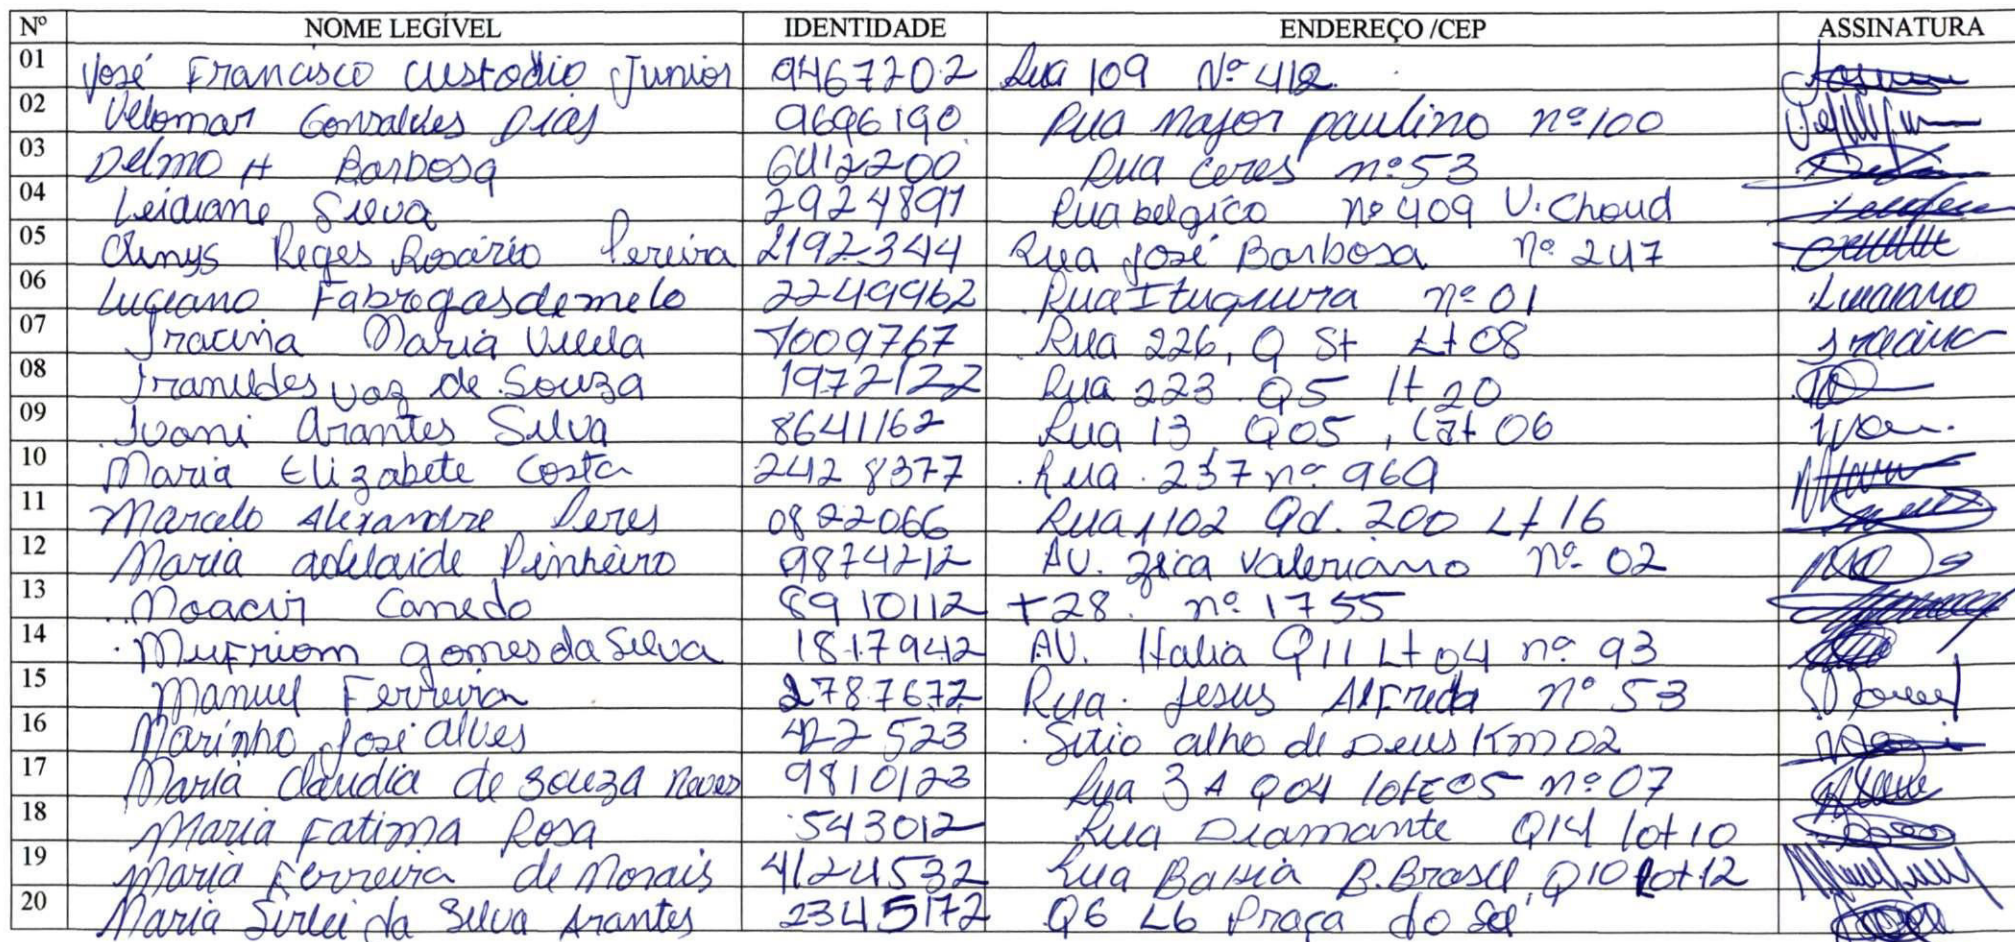 Nº NOME LEGÍVEL IDENTIDADE ENDEREÇO /CEP ASSINATURA
01 José Francisco Custodio Junior 9467202 Rua 109 Nº 412
02 Velomar Gonsaldes Dias 9696190 Rua Major paulino nº 100
03 Delmo A Barbosa 6412200 Rua Ceres nº 53
04 Leidiane Silva 2924897 Rua belgico nº 409 V. Choud
05 Reges Rosário Pereira 2192344 Rua José Barbosa nº 247
06 Luciano Fabregas de melo 2249962 Rua nº 01 Luciano
07 Iracina Maria Vilela 7009767 Rua 226, Q St Lt 08 Iracina
08 Iranildes vaz de Souza 1972122 Rua 223 Q5 lt 20
09 Ivani Arantes Silva 8641162 Rua 13 Q05, Lot 06
10 Maria Elizabete Costa 2428377 Rua 237 nº 969
11 Marcelo Alexandre Peres 0822066 Rua 1102 Qd. 200 Lt 16
12 Maria adelaide Pinheiro 9874212 AV. Zica Valeriano Nº 02
13 Moacir Canedo 8910112 T28 nº 1755
14 gomes da Silva 1817942 AV. Italia Q11 Lt 04 nº 93
15 Manuel Ferreira 2787672 Rua Jesus Alfreda nº 53
16 Marinho José Alves 422523 Sitio alho de Deus Km 02
17 Maria Claudia de Souza Neves 9810123 Rua 3A Q04 lote 05 nº 07
18 Maria Fatima Rosa 543012 Rua Diamante Q14 lot 10
19 Maria Ferreira de Morais 4124532 Rua Bahia B. Brasil Q10 lot 12
20 Maria Sirlei da Silva Arantes 2345172 Q6 L6 Praça do Sol